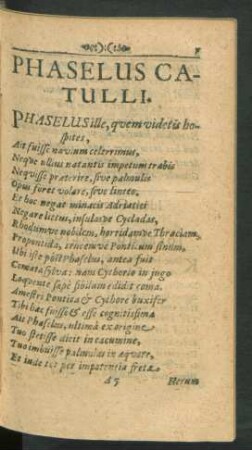 PHASELUS CA-
TULLI.
PHASELUS ille, quem videtis ho-
spites,
Ait fuisse navium celerrimus,
Neque ullius natantis impetum trabis
Nequisse præterire, sive palmulis
Opus foret volare, sive linteo.
Et hoc negat minacis Adriatici
Negare littus, insulasve Cycladas,
Rhodumve nobilem, horridamve Thraciam,
Propontida, trucemve Ponticum sinum.
Ubi iste póst Phaselus, antea fuit
Comata sylva: nam Cythorio in jugo
Loquente sæpe sibilum edidit coma.
Amestri Pontica & Cythore buxifer
Tibi hæc fuisse & esse cognitissima
Ait Phaselus, ultimâ ex origine
Tuo stetisse dicit in cacumine,
Tuo imbuisse palmulas in æquore,
Et inde tot per impotentia freta
A5 Herum